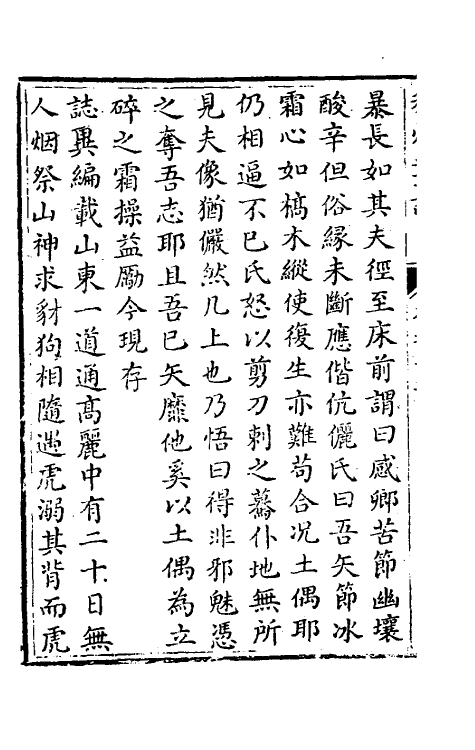 暴長如其夫徑至床前謂曰感卿苦節幽壤
酸辛但俗緣未斷應偕伉儷氏曰吾矢節冰
霜心如槁木縱使復生亦難苟合况土偶耶
仍相逼不已氏怒以剪刀刺之驀仆地無所
見夫像猶儼然几上也乃悟曰得非邪魅憑
之奪吾志耶且吾已矢靡他奚以土偶為立
碎之霜操益勵今現存
誌異編載山東一道通高麗中有二十日無
人烟祭山神求豺狗相隨遇虎溺其背而虎